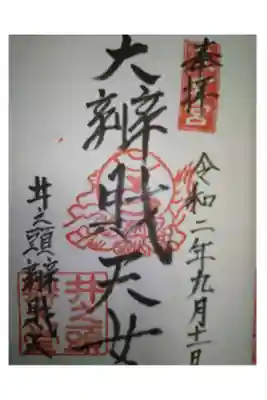 奉拝
令和二年九月十一日
大辨財天女
井之頭辨財天